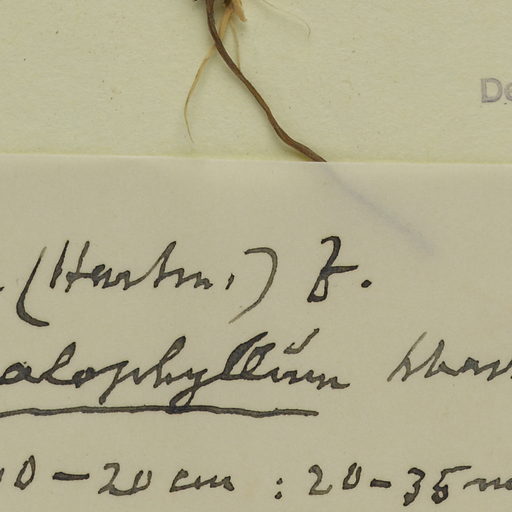 De
. (Hartm.) F.
alophyllum
10 - 20 cm : 20 - 35 m